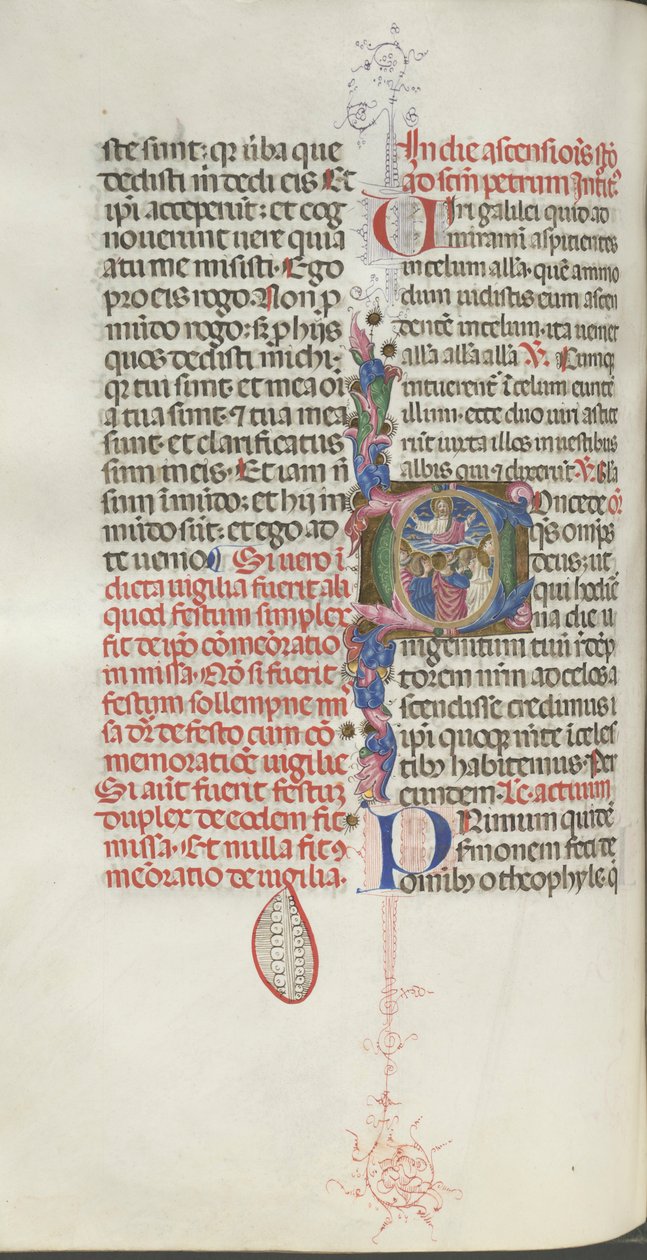 ste sunt: qꝛ ūba que
dedisti m̄ dedi eis. Et
ip̄i acceperūt: et cog
nouerunt uere quia
a tu me misisti. Ego
pro eis rogo. Non p̄
mūdo rogo: sꝫ p̄ hijs
quos dedisti michi:
qꝛ tui sunt: et mea oīa
a tua sunt. ⁊ tua mea
sunt. et clarificatus
sum in eis. Et iam n̄
sum ī mūdo: et hij in
mūdo sūt: et ego ad
te uenio. Si uero ī
dicta uigilia fuerit ali
quod festum simplex
fit de ip̄o cōmēoratio
in missa. Nō si fuerit
festum sollempne mi
sa dr̄ de festo cum cō
memoratiōe uigilie
Si aūt fuerit festuꝫ
duplex de eodem fit
missa. Et nulla fit ꝯ
mēoratio de uigilia.
In die ascensiōis stō
ad scm̄ petrum Intit.
Uiri galilei quid ad
miramī aspitientes
in celum all'a. quē ammo
dum uidistis eum ascen
dentē in celum. ita ueniet
all'a all'a all'a V̄. Cumqꝫ
intuerent̄ ī celum eunte
illum. ecce duo uiri astite
rūt iuxta illos in uestibus
albis qui ⁊ dixerūt. V̄. Gl'a
Concede
qs̄ omīps
deus: ut
qui hodie
na die u
nigenitum tuū rēdēp
torem nr̄m ad celos a
scendisse credimus: i
ip̄i quoqꝫ mēte ī celes
tibꝫ habitemus. Per
eundem. Lc̄. actuum
Primum quidē
s̄monem feci de
omibꝫ o theophyle. q̄